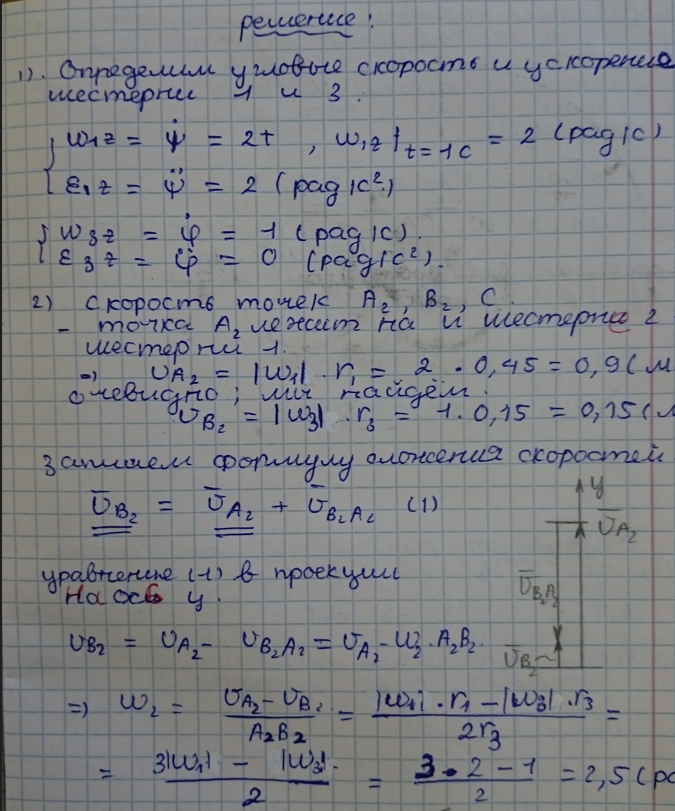 решение:
1). Определим угловые скорость и ускорение
шестерни 1 и 3.
ω₁z = ψ̇ = 2t , ω₁z|t=1c = 2 (рад/с)
ε₁z = ψ̈ = 2 (рад/с²)
ω₃z = φ̇ = 1 (рад/с).
ε₃z = φ̈ = 0 (рад/с²).
2) скорость точек A₂, B₂, C.
- точка A₂ лежит на и шестерне 2
шестерни 1.
=> υA₂ = |ω₁| · r₁ = 2 · 0,45 = 0,9 (м
очевидно; мы найдём.
υB₂ = |ω₃| · r₃ = 1 · 0,15 = 0,15 (м
Запишем формулу сложения скоростей
ῡB₂ = ῡA₂ + ῡB₂A₂ (1)
y
ῡA₂
ῡB₂A₂
ῡB₂
уравнение (1) в проекции
на ось y.
υB₂ = υA₂ - υB₂A₂ = υA₂ - ω₂ · A₂B₂.
=> ω₂ = (υA₂ - υB₂)/A₂B₂ = (|ω₁| · r₁ - |ω₃| · r₃)/2r₃ =
= (3|ω₁| - |ω₃|)/2 = (3 · 2 - 1)/2 = 2,5 (ра